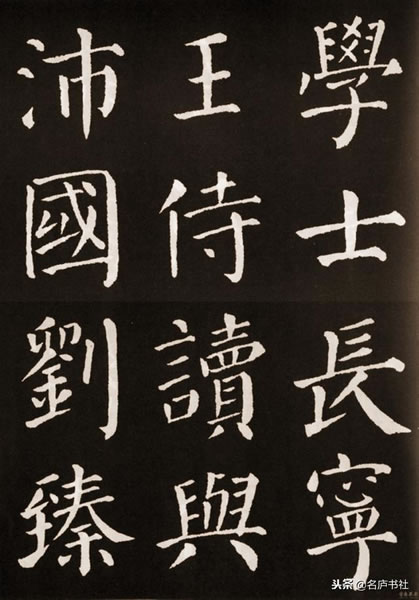 學士長寧
王侍讀與
沛國劉臻
头条@名庐书社